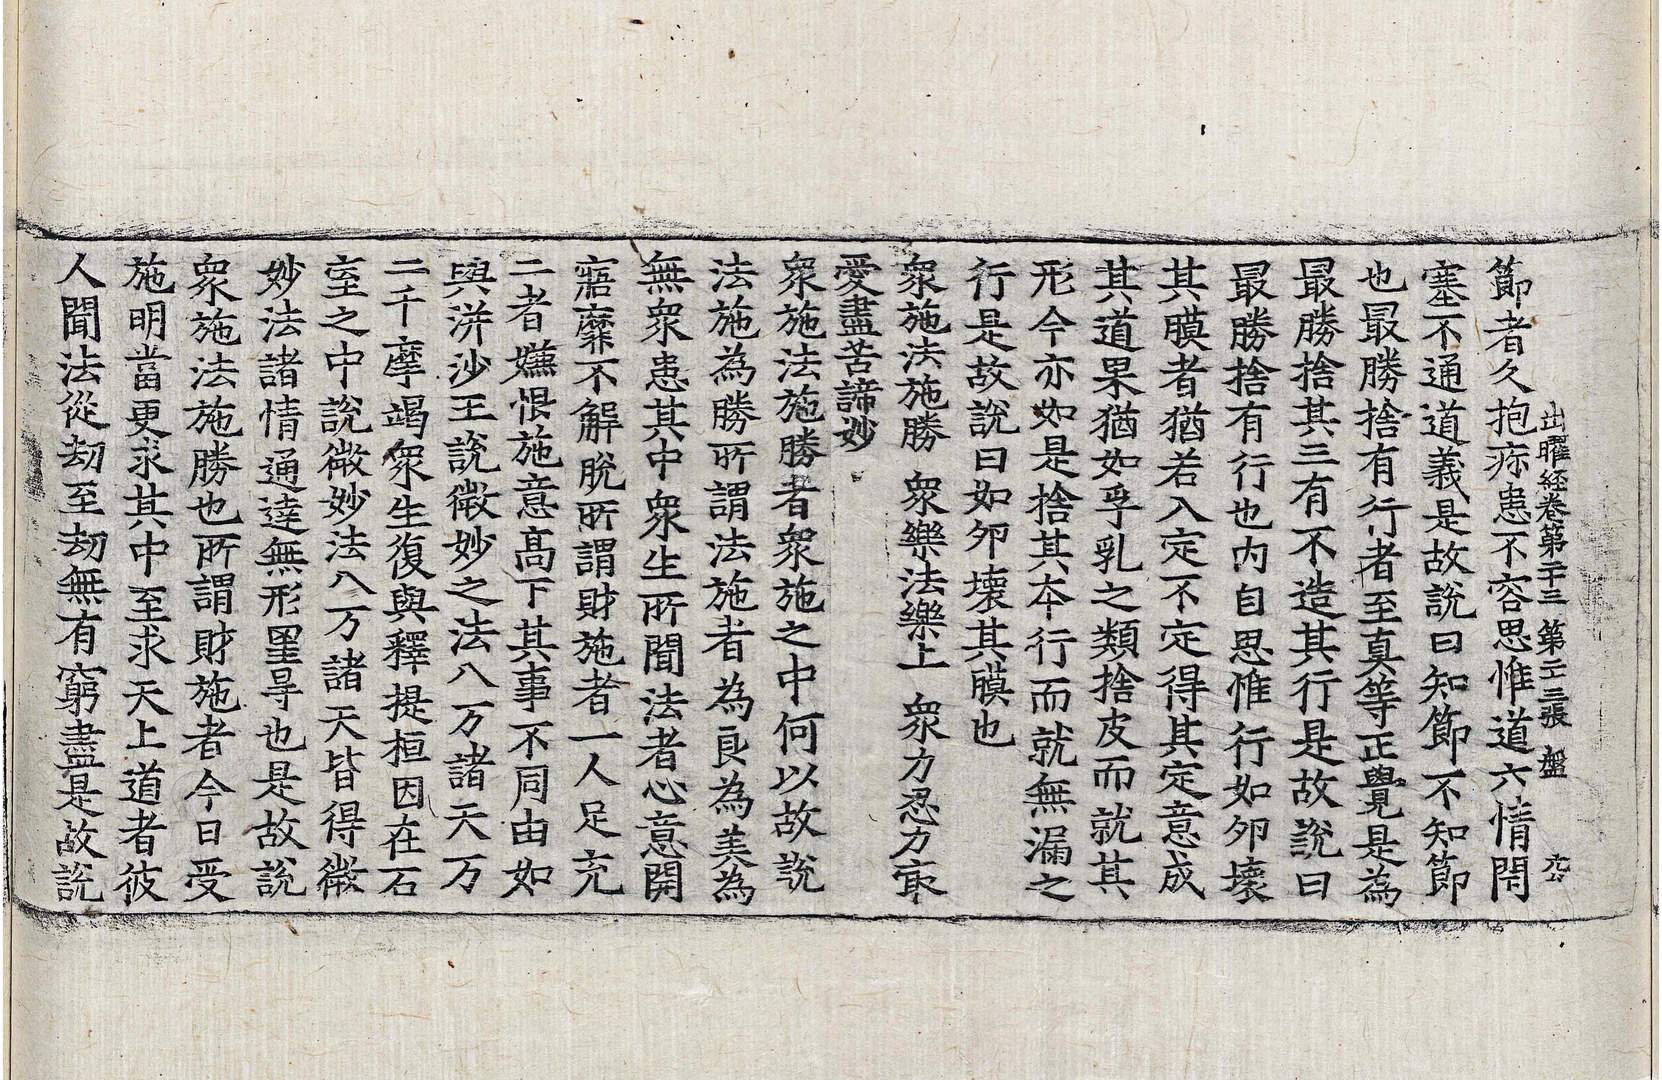 出曜経卷第二十三 第二十三張 盤
節者久抱疹患不容思惟道六情閇
塞不通道義是故說曰知節不知節
也最勝捨有行者至真等正覺是為
最勝捨其三有不造其行是故說曰
最勝捨有行也內自思惟行如夘壞
其膜者猶若入定不定得其定意成
其道果猶如孚乳之類捨皮而就其
形今亦如是捨其夲行而就無漏之
行是故說曰如夘壞其膜也
衆施法施勝 衆樂法樂上 衆力忍力㝡
愛盡苦諦妙
衆施法施勝者衆施之中何以故說
法施為勝所謂法施者為良為美為
無衆患其中衆生所聞法者心意開
寤靡不解脫所謂財施者一人足充
二者嫌恨施意高下其事不同由如
與洴沙王說微妙之法八万諸天万
二千摩竭衆生復與釋提桓因在石
室之中說微妙法八万諸天皆得微
妙法諸情通達無形罣㝵也是故說
衆施法施勝也所謂財施者今日受
施明當更求其中至求天上道者彼
人聞法從劫至劫無有窮盡是故說